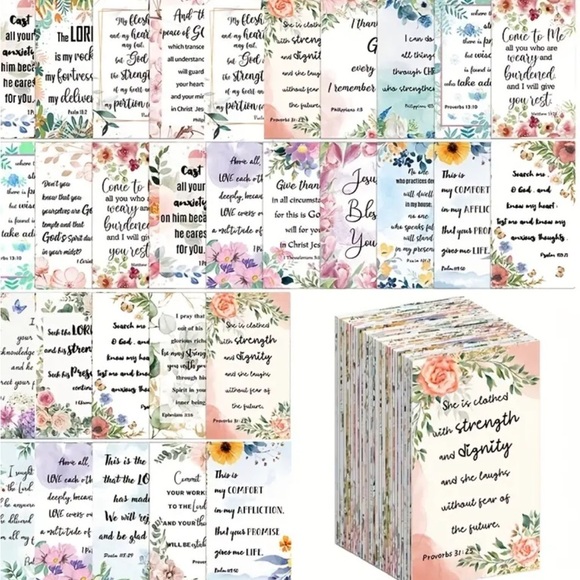 Cast
all your
anxiety
him beca
he cares
for you.
The LORD
is my rock
my fortress
my deliver
Psalm 18:2
My flesh
and my heart
may fail,
but God
strength
my heart
my portion
And the
peace of G
which transce
all understan
will guard
your heart
and your mi
in Christ Jes
My flesh
and my heart
may fail,
but God is
the strength
of my heart
my portion
She is clothed
with strength
and dignity
and she laughs
without fear of
the future.
Proverbs 31:25
I than
G
every
I remember
Philippians 1:3
I can do
all things
through CHR
who strengthen
where th
there is
but wis
is found
who take ad
Proverbs 13:10
Come to Me
all you who are
weary and
burdened
and I will
give you
rest.
Matthew 11:28
where th
there is
but wis
is found in
who take ad
bs 13:10
Don't you
know that you
yourselves are Go
temple and that
God's Spirit dw
in your midst?
Come to
all you who
weary and
burdened
and I will
Cast
all your
anxiety
on him beca
he cares
for you.
Above all,
LOVE each oth
deeply, because
LOVE covers ov
a multitude of
Give than
in all circumstan
for this is Go
will for yo
in Christ Jes
1 Thessalonians 5:18
Jesu
Bles
You
No one
who practices de
will dwell
in my house;
no one
who speaks fal
will stand
in my presen
This is
my COMFORT
in my AFFLIC
that your
PROMISE
gives me LIFE.
Psalm 119:50
Search me
O God, and
know my heart;
test me and know my
anxious thoughts.
Psalm 139:23
Seek the LORD
and his stren
Seek his Prese
Search me
O God, and
know my hea
test me and kno
anxious thou
I pray that
out of his
glorious riche
he may streng
you with po
through his
Spirit in yo
inner being
Ephesians 3:16
She is clothed
with strength
and dignity
and she laughs
without fear of
the future.
Proverbs 31:25
She is clothed
with strength
and dignity
and she laughs
without fear of
the future.
Proverbs 31:25
I sought
Above all,
LOVE each oth
deeply, becaus
LOVE covers
a multitude of
This is the
that the LO
has made
We will rej
and be glad
Psalm 118:24
Commit
YOUR WORK
TO THE
AND YOUR
WILL BE
This is
my COMFORT
in my AFFLICTION,
that your PROMISE
gives me LIFE.
Psalm 119:50